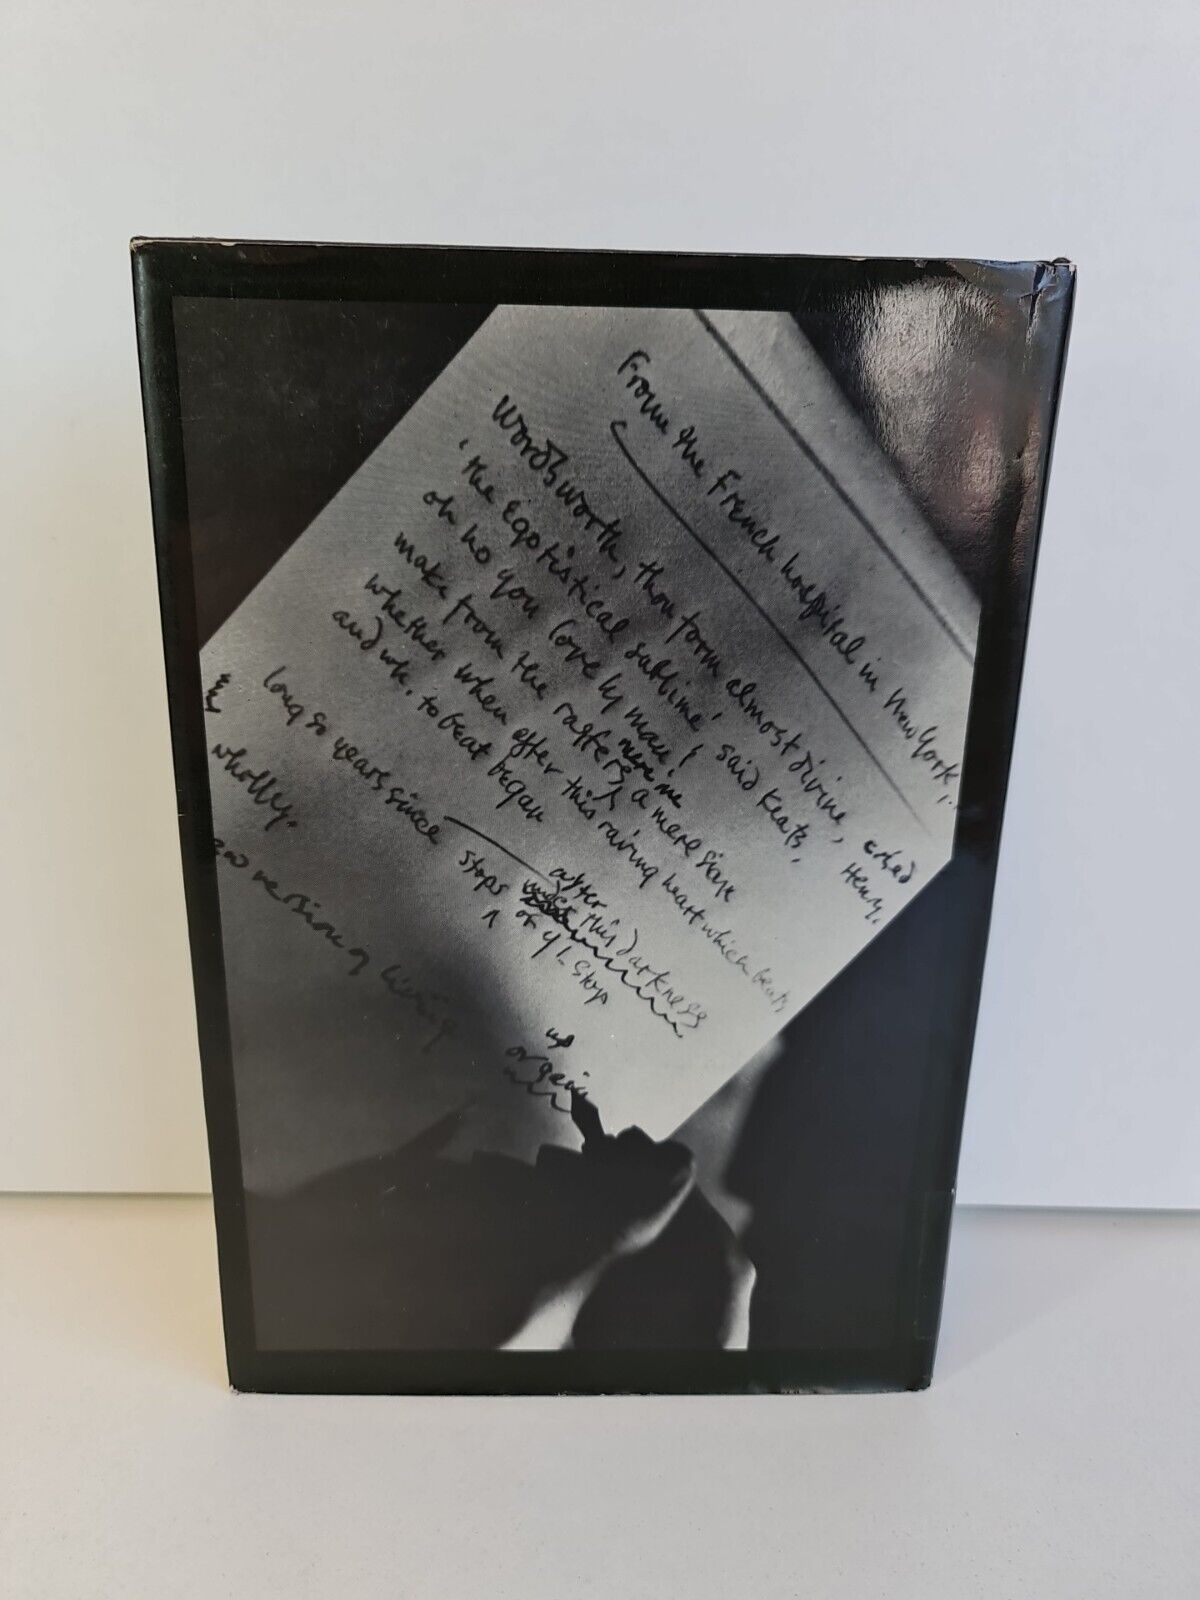 From the French hospital in New York,
Wordsworth, thou form almost divine, cried Henry,
'the Egotistical sublime' said Keats,
oh ho you love ly man!
make from the rafters a mere sign
mere me
whether when after this raving heart which beats
and wh. to beat began
long so years since
stops
after this darkness
or yL stop
wholly.
version of living
up
or gain